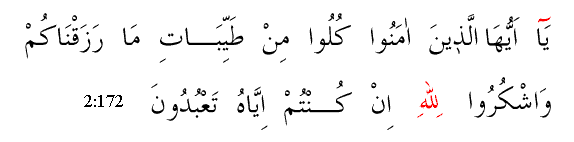 يَٓا اَيُّهَا الَّذ۪ينَ اٰمَنُوا كُلُوا مِنْ طَيِّبَـــاتِ مَا رَزَقْنَاكُمْ
وَاشْكُرُوا لِلّٰهِ اِنْ كُـــنْتُمْ اِيَّاهُ تَعْبُدُونَ 2:172